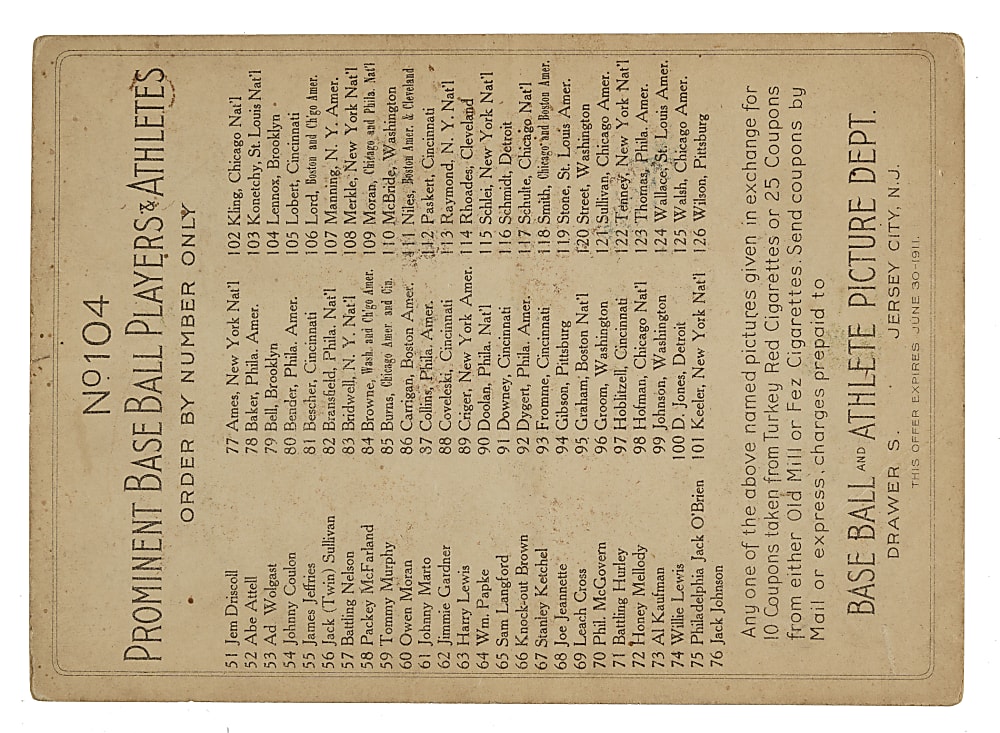 No 104
PROMINENT BASE BALL PLAYERS & ATHLETES
ORDER BY NUMBER ONLY
51 Jem Driscoll
52 Abe Attell
53 Ad Wolgast
54 Johnny Coulon
55 James Jeffries
56 Jack (Twin) Sullivan
57 Battling Nelson
58 Packey McFarland
59 Tommy Murphy
60 Owen Moran
61 Johnny Marto
62 Jimmie Gardner
63 Harry Lewis
64 Wm. Papke
65 Sam Langford
66 Knock-out Brown
67 Stanley Ketchel
68 Joe Jeannette
69 Leach Cross
70 Phil. McGovern
71 Battling Hurley
72 Honey Mellody
73 Al Kaufman
74 Willie Lewis
75 Philadelphia Jack O'Brien
76 Jack Johnson
77 Ames, New York Nat'l
78 Baker, Phila. Amer.
79 Bell, Brooklyn
80 Bender, Phila. Amer.
81 Bescher, Cincinnati
82 Bransfield, Phila. Nat'l
83 Bridwell, N. Y. Nat'l
84 Browne, Wash. and Ch'go Amer.
85 Burns, Chicago Amer and Cin.
86 Carrigan, Boston Amer.
37 Collins, Phila. Amer.
88 Coveleski, Cincinnati
89 Criger, New York Amer.
90 Doolan, Phila. Nat'l
91 Downey, Cincinnati
92 Dygert, Phila. Amer.
93 Fromme, Cincinnati
94 Gibson, Pittsburg
95 Graham, Boston Nat'l
96 Groom, Washington
97 Hoblitzell, Cincinnati
98 Hofman, Chicago Nat'l
99 Johnson, Washington
100 D. Jones, Detroit
101 Keeler, New York Nat'l
102 Kling, Chicago Nat'l
103 Konetchy, St. Louis Nat'l
104 Lennox, Brooklyn
105 Lobert, Cincinnati
106 Lord, Boston and Ch'go Amer.
107 Manning, N. Y. Amer.
108 Merkle, New York Nat'l
109 Moran, Chicago and Phila. Nat'l
110 McBride, Washington
111 Niles, Boston Amer. & Cleveland
112 Paskert, Cincinnati
113 Raymond, N. Y. Nat'l
114 Rhoades, Cleveland
115 Schlei, New York Nat'l
116 Schmidt, Detroit
117 Schulte, Chicago Nat'l
118 Smith, Chicago and Boston Amer.
119 Stone, St. Louis Amer.
120 Street, Washington
121 Sullivan, Chicago Amer.
122 Tenney, New York Nat'l
123 Thomas, Phila. Amer.
124 Wallace, St. Louis Amer.
125 Walsh, Chicago Amer.
126 Wilson, Pittsburg
Any one of the above named pictures given in exchange for
10 Coupons taken from Turkey Red Cigarettes or 25 Coupons
from either Old Mill or Fez Cigarettes. Send coupons by
Mail or express, charges prepaid to
BASE BALL AND ATHLETE PICTURE DEPT.
DRAWER S. JERSEY CITY, N.J.
THIS OFFER EXPIRES JUNE 30-1911.